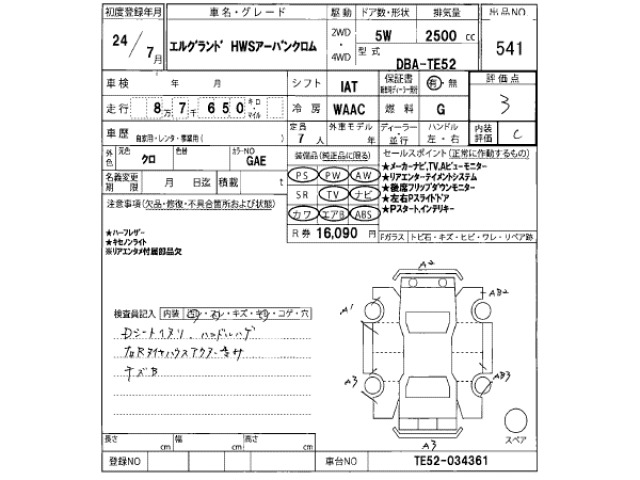 初度登録年月 車名・グレード 駆動 ドア数・形状 排気量 出品NO
24/7月 エルグランド HWSアーバンクロム 2WD・4WD 5W 2500 cc 541
型式 DBA-TE52
車検 年 月 シフト IAT 保証書 有・無 評価点 3
走行 8万7千650 キロ・マイル 冷房 WAAC 燃料 G
車歴 自家用・レンタ・事業用( ) 定員 7人 外車モデル 年 ディーラー・並行 ハンドル 左・右 内装評価 C
外色 元色 クロ 色替 カラーNO GAE
装備品(純正品に限る) セールスポイント(正常に作動するもの)
名義変更期限 月 日迄 積載 t
PS PW AW
SR TV ナビ
カワ エアB ABS
★メーカーナビ,TV,Aビューモニター
★リアエンターテイメントシステム
★後席フリップダウンモニター
★左右Pスライドドア
★Pスタート,インテリキー
注意事項(欠品・修復・不具合箇所および状態)
★ハーフレザー
★キセノンライト
※リアエンタメ付属部品欠
R券 16,090 円
Fガラス トビ石・キズ・ヒビ・ワレ・リペア跡
検査員記入 内装
キズ
コゲ・穴
Dシート
ハンドルハゲ
キズB
A2
A1
AB2
A3
AB3
A3
スペア
長さ cm 幅 cm 高さ cm
登録NO 車台NO TE52-034361